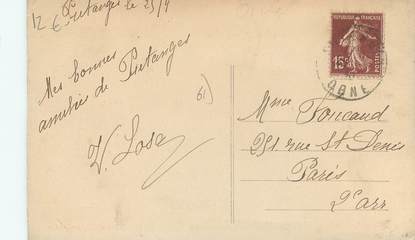 12
Putanges le 25/9
Mes bonnes
amitiés de Putanges
61)
RÉPUBLIQUE FRANÇAISE
15c
POSTES
ORNE
Mme Foucaud
251 rue St Denis
Paris
2e arr